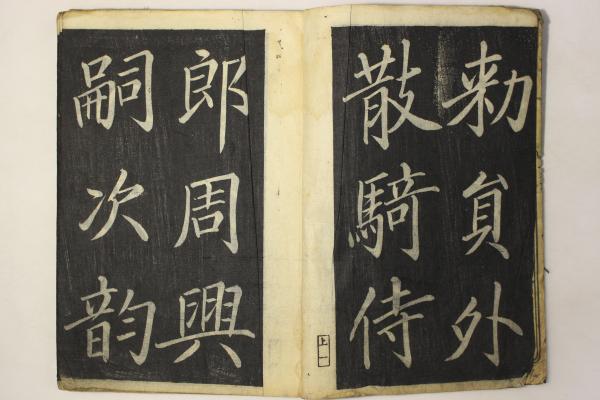 勑員外
散騎侍
郎周興
嗣次韵
上一